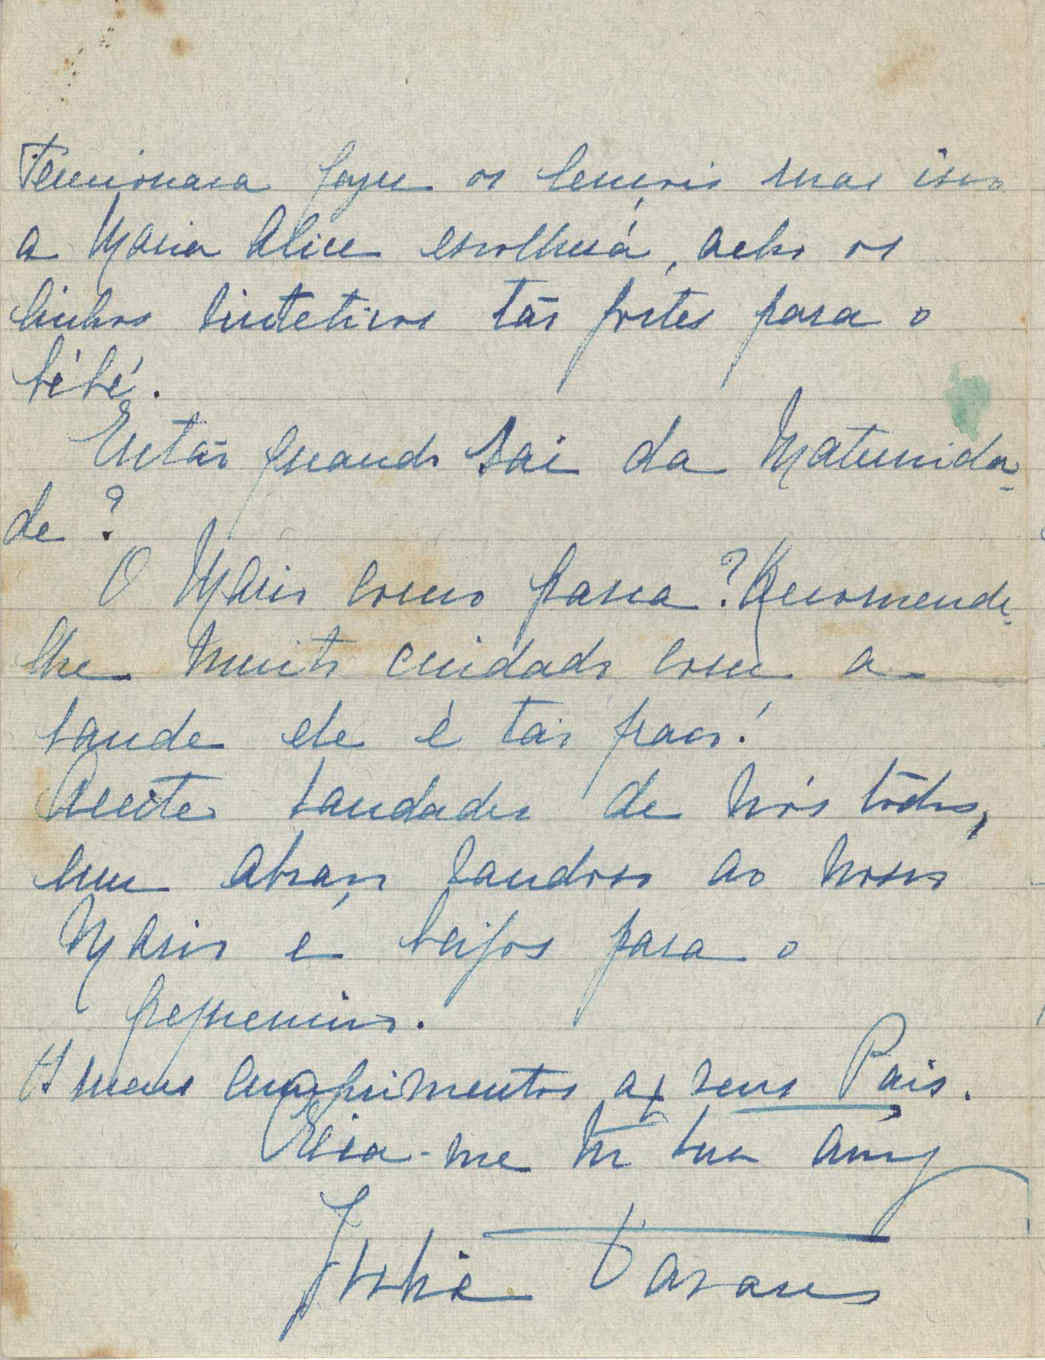 Tencionava fazer os lençois mas isso
a Maria Alice escolherá, acho os
linhos sinteticos tão fortes para o
bébé.
Então quando sai da Maternida-
de?
O Mario como passa? Recomende-
lhe muito cuidado com a
saude ele é tão fraco!
Aceite saudades de nós todos,
um abraço saudoso ao nosso
Mario e beijos para o
pequenino.
Os meus cumprimentos a seus Pais.
Creia-me m to sua amg
Tavares